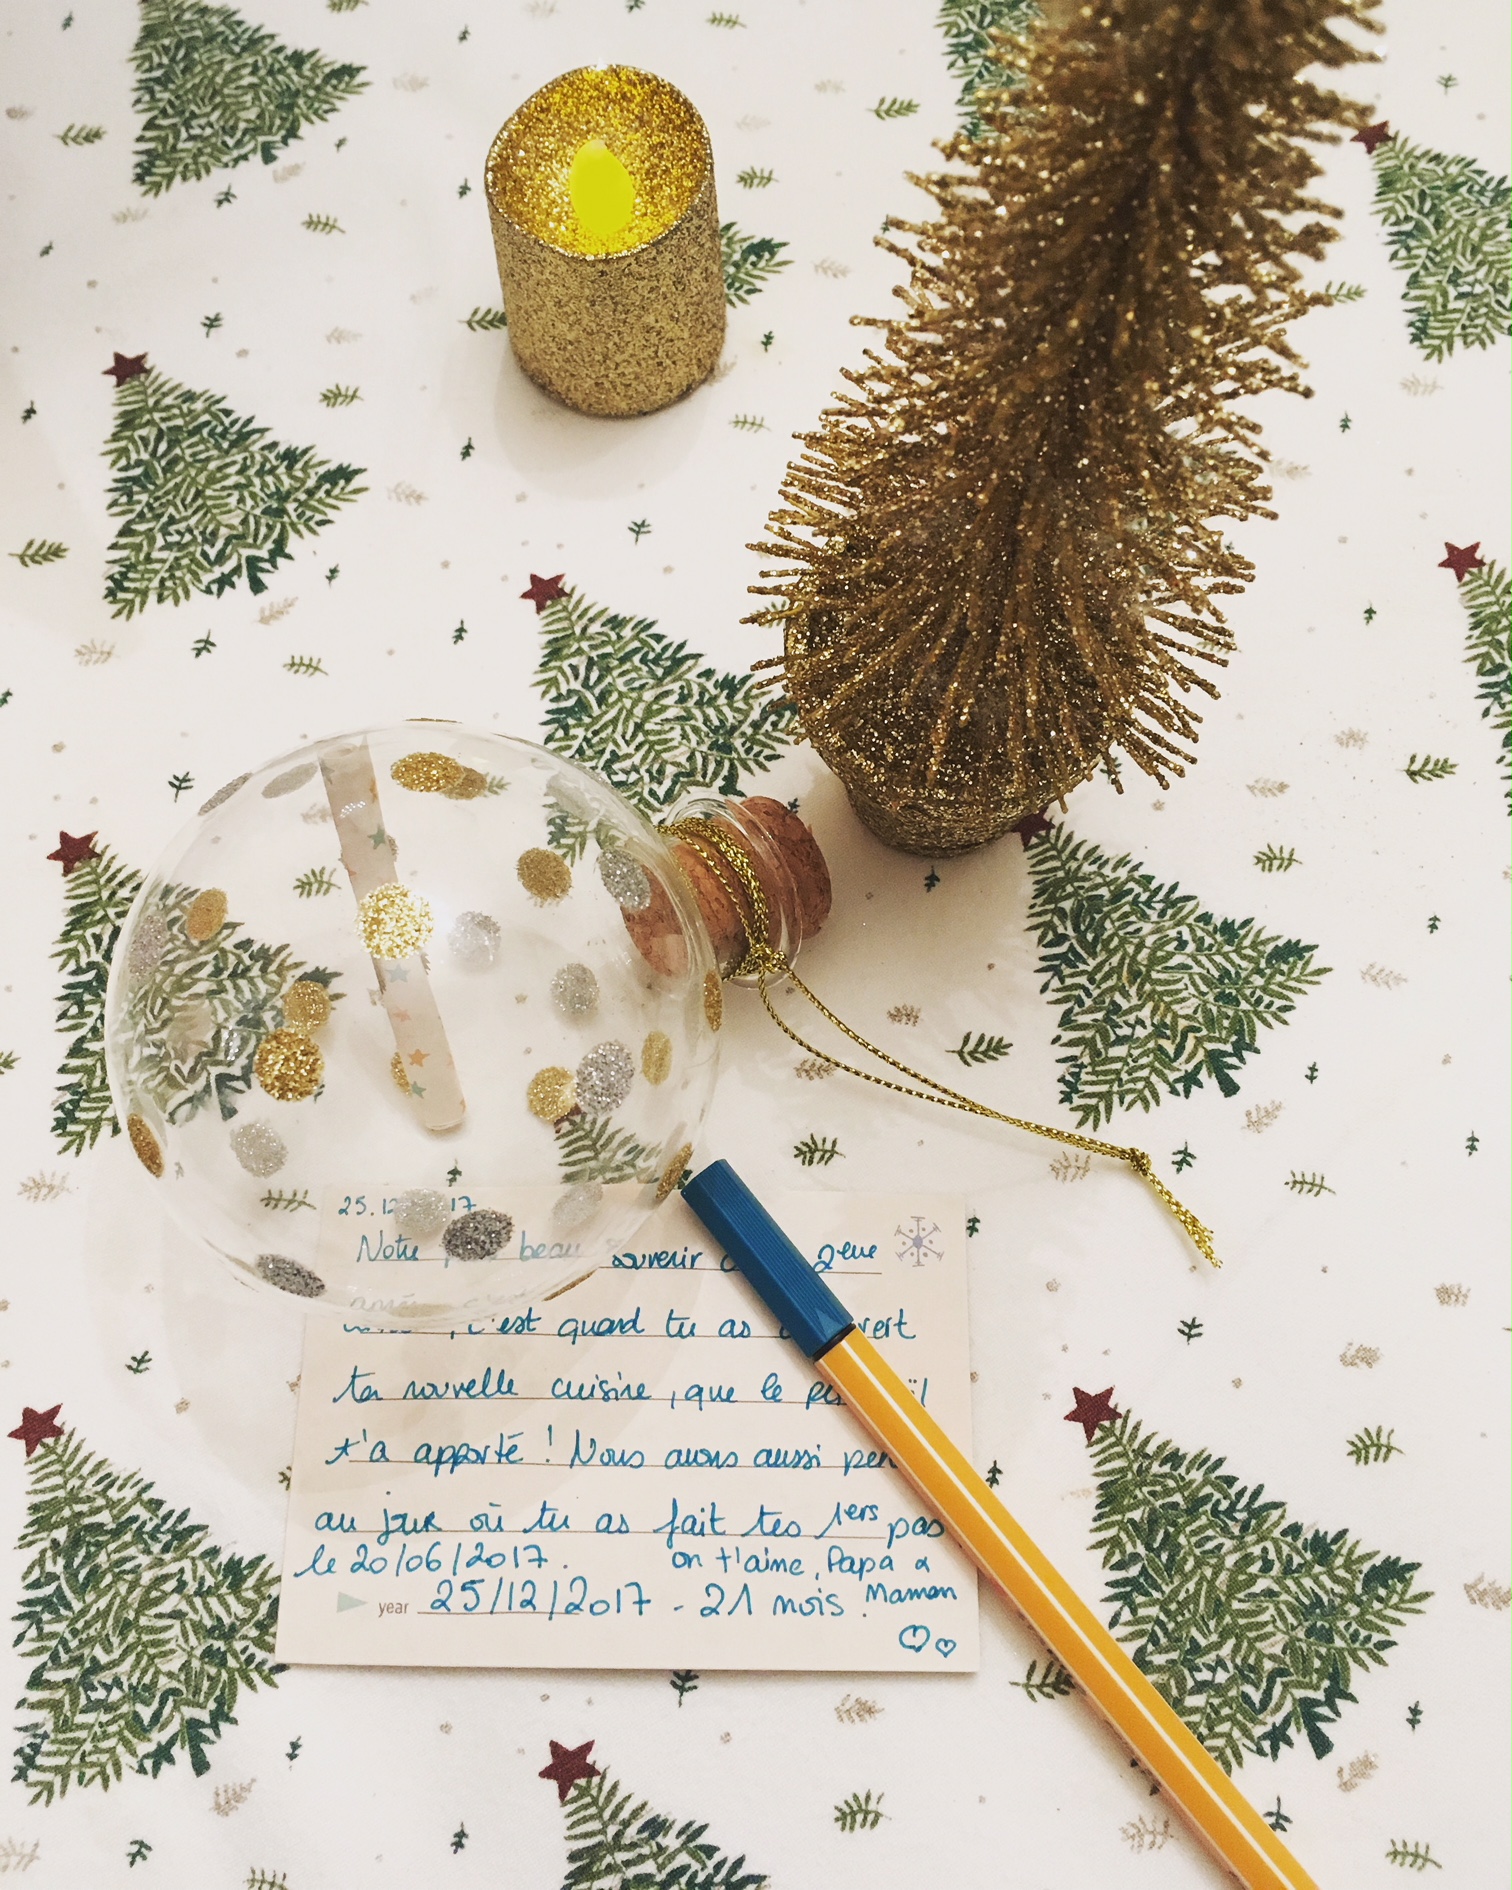 25.12 17
Notre beau souvenir 2ème
c'est quand tu as vert
ta nouvelle cuisine, que le
t'a apporté ! Nous avons aussi
au jour où tu as fait tes 1ers pas
le 20/06/2017. on t'aime, Papa &
year 25/12/2017 - 21 mois. Maman